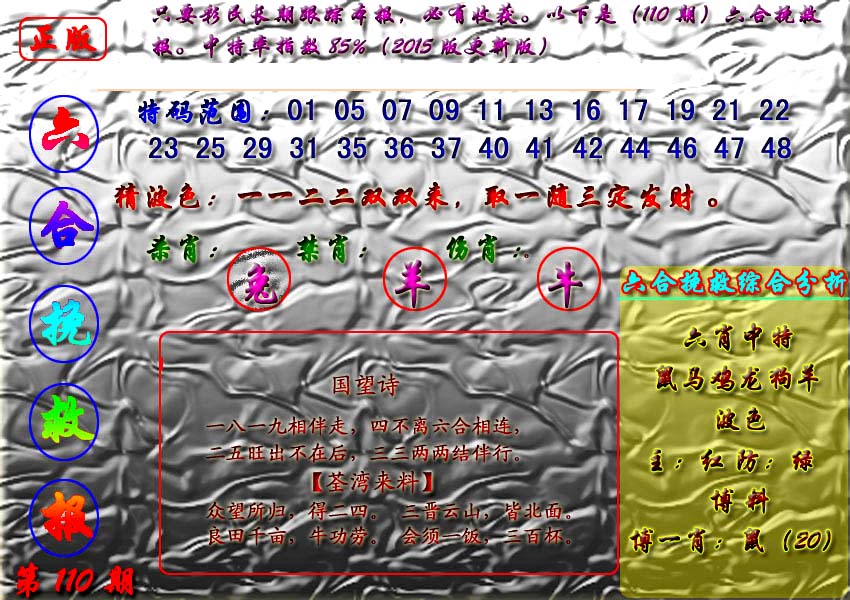 正版
只要彩民长期跟踪本报，必有收获。以下是（110期）六合挽救
报。中特率指数85%（2015版更新版）
六合挽救报
第110期
特码范围：01 05 07 09 11 13 16 17 19 21 22
23 25 29 31 35 36 37 40 41 42 44 46 47 48
猜波色：一一二二双双来，取一随三定发财。
杀肖：兔 禁肖：羊 伤肖：牛
国望诗
一八一九相伴走，四不离六合相连，
二五旺出不在后，三三两两结伴行。
【荃湾来料】
众望所归，得二四。 三晋云山，皆北面。
良田千亩，牛功劳。 会须一饭，三百杯。
六合挽救综合分析
六肖中特
鼠马鸡龙狗羊
波色
主：红防：绿
博料
博一肖：鼠（20）